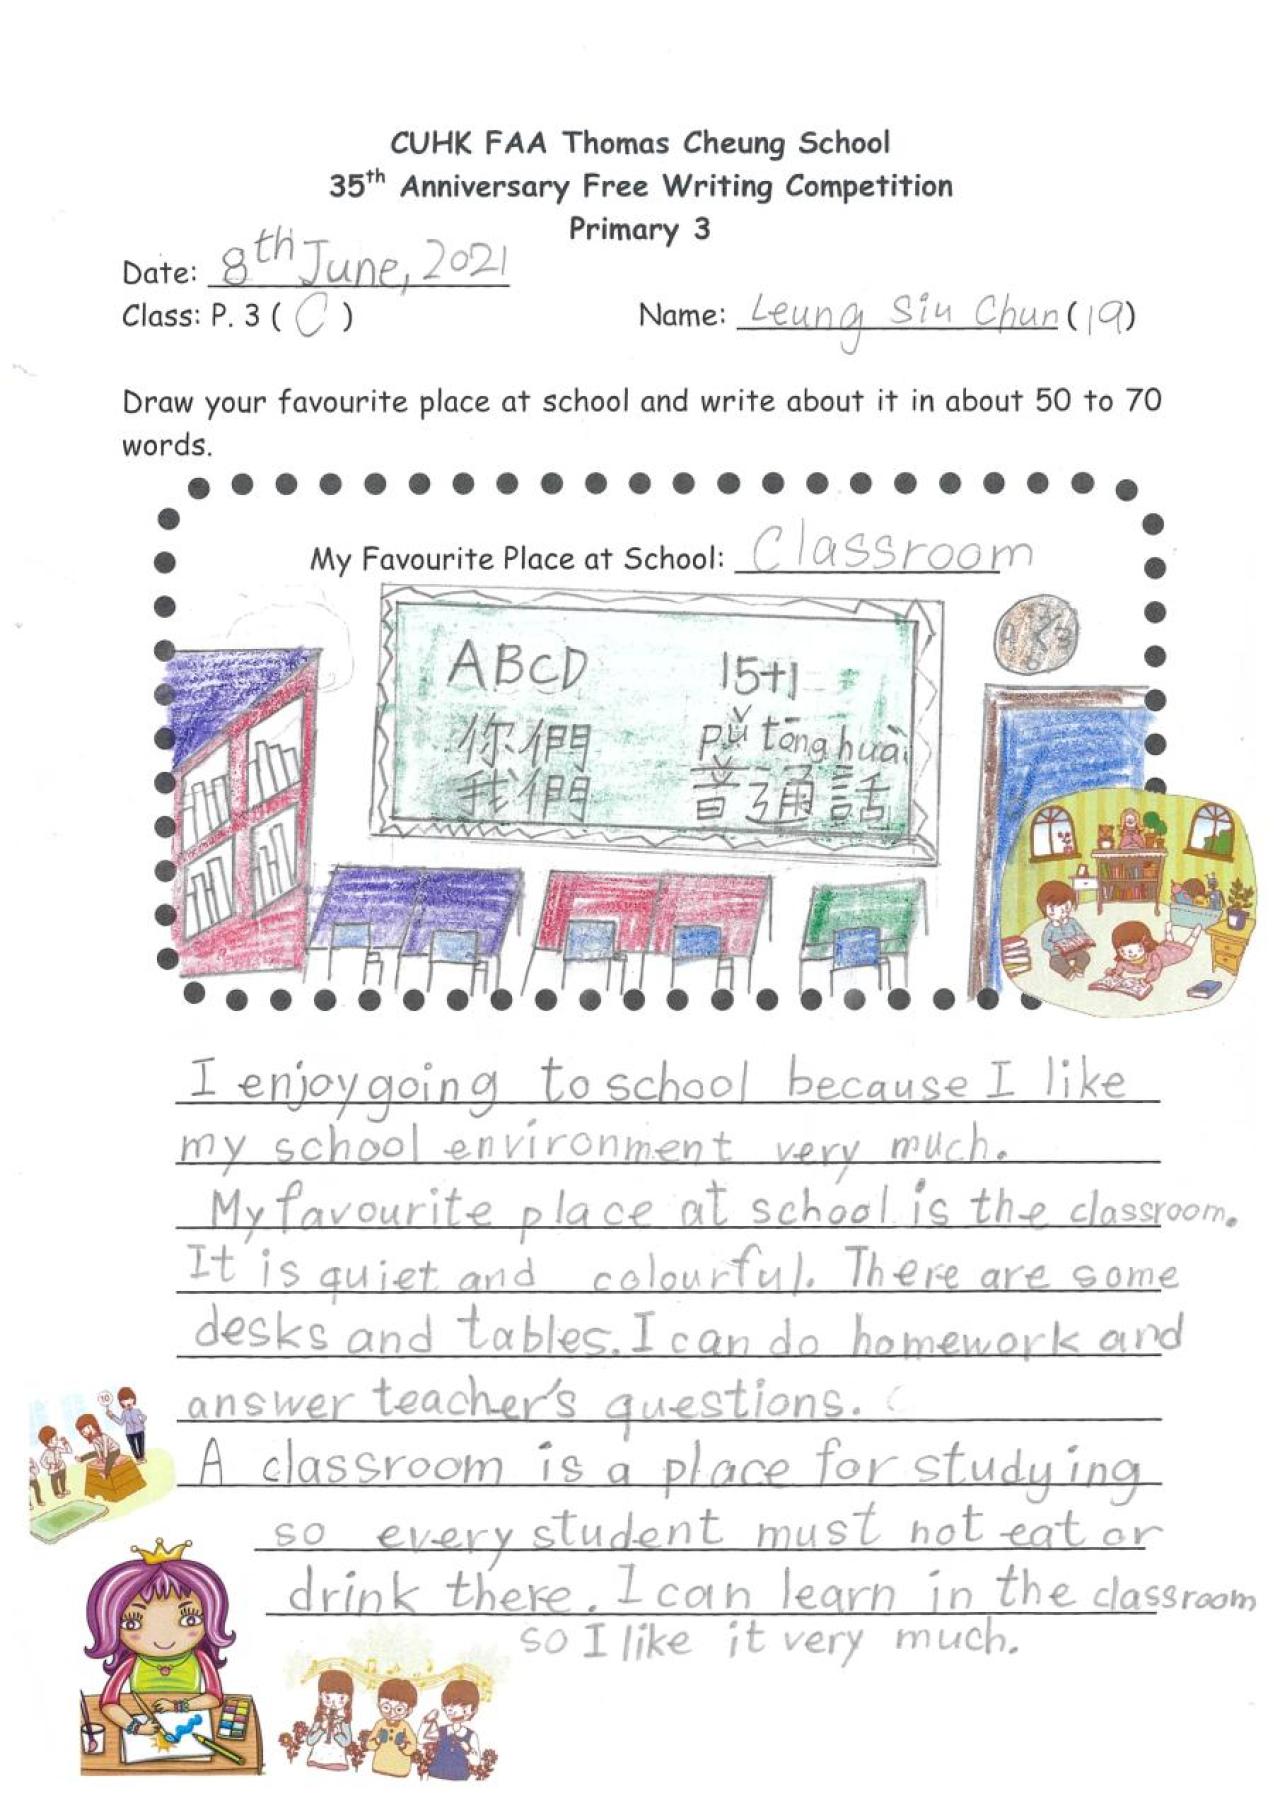 CUHK FAA Thomas Cheung School
35th Anniversary Free Writing Competition
Primary 3
Date: 8th June, 2021
Class: P. 3 ( C )
Name: Leung Siu Chun (19)
Draw your favourite place at school and write about it in about 50 to 70
words.
My Favourite Place at School: Classroom
ABCD 15+1
你們 pǔ tōng huà
我們 普通話
I enjoy going to school because I like
my school environment very much.
My favourite place at school is the classroom.
It is quiet and colourful. There are some
desks and tables. I can do homework and
answer teacher's questions.
A classroom is a place for studying
so every student must not eat or
drink there. I can learn in the classroom
so I like it very much.